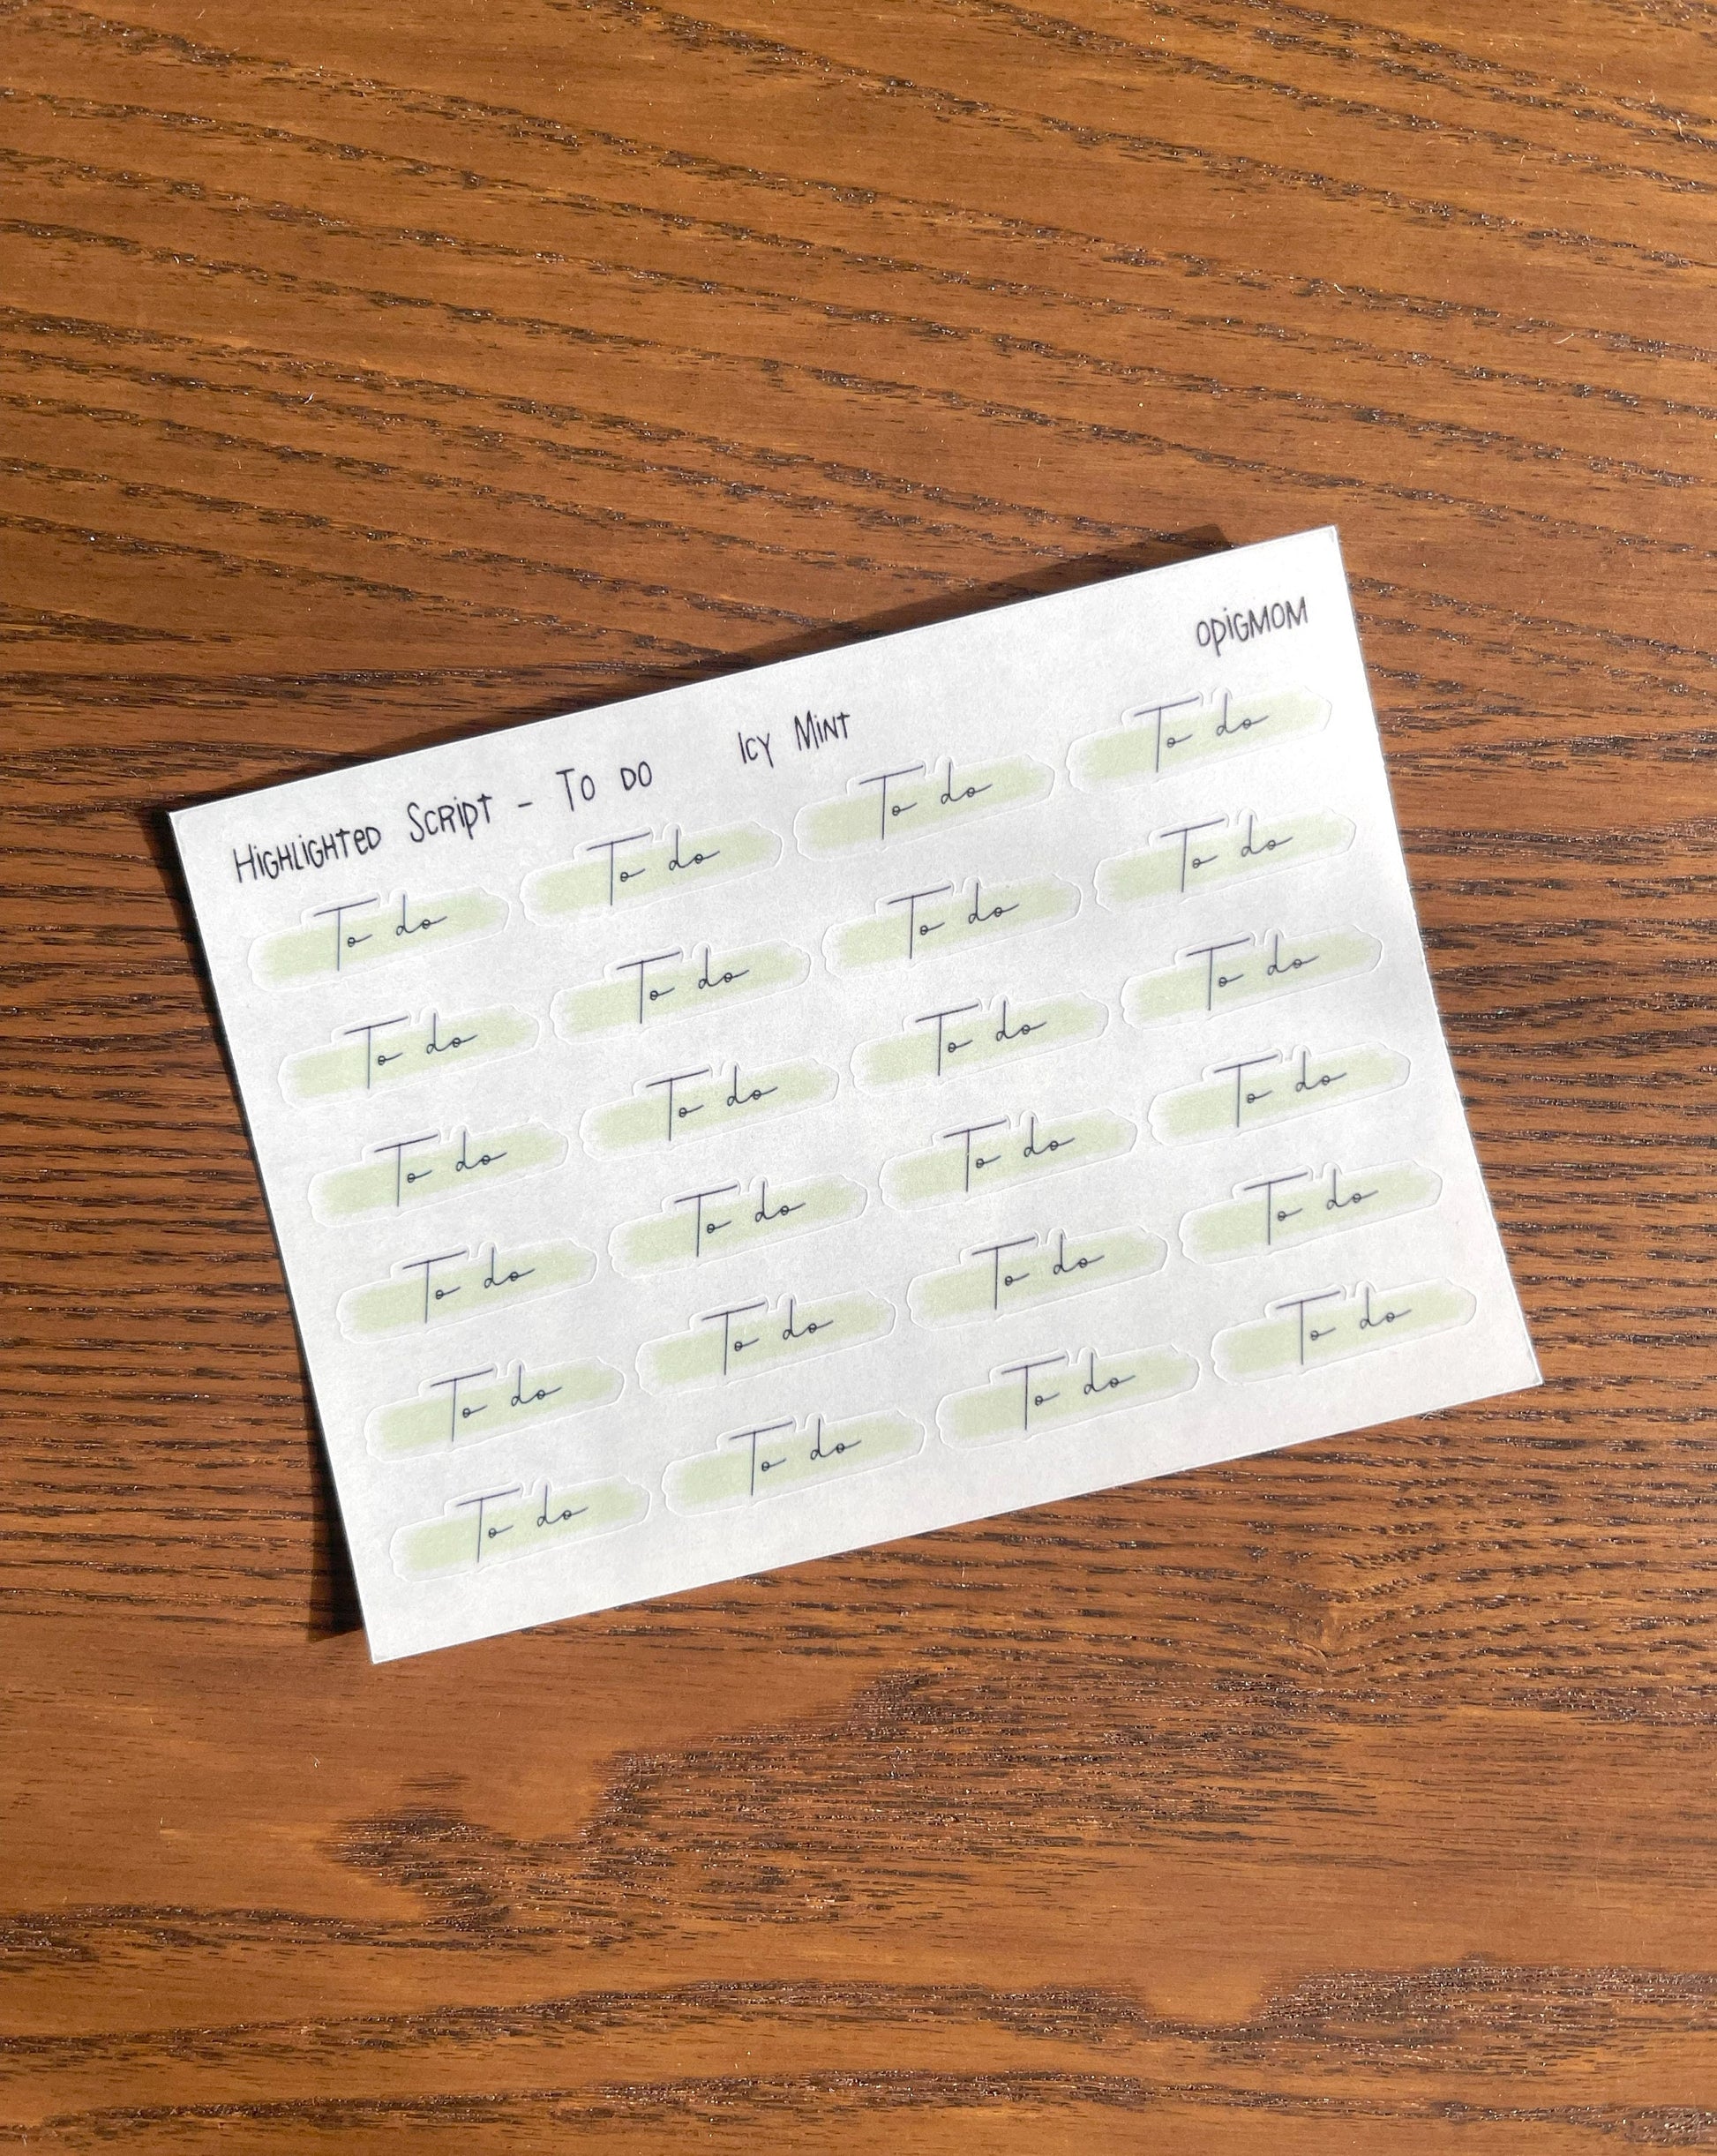 opigmom
Highlighted Script - To do Icy Mint
To do To do To do To do
To do To do To do To do
To do To do To do To do
To do To do To do To do
To do To do To do To do
To do To do To do To do